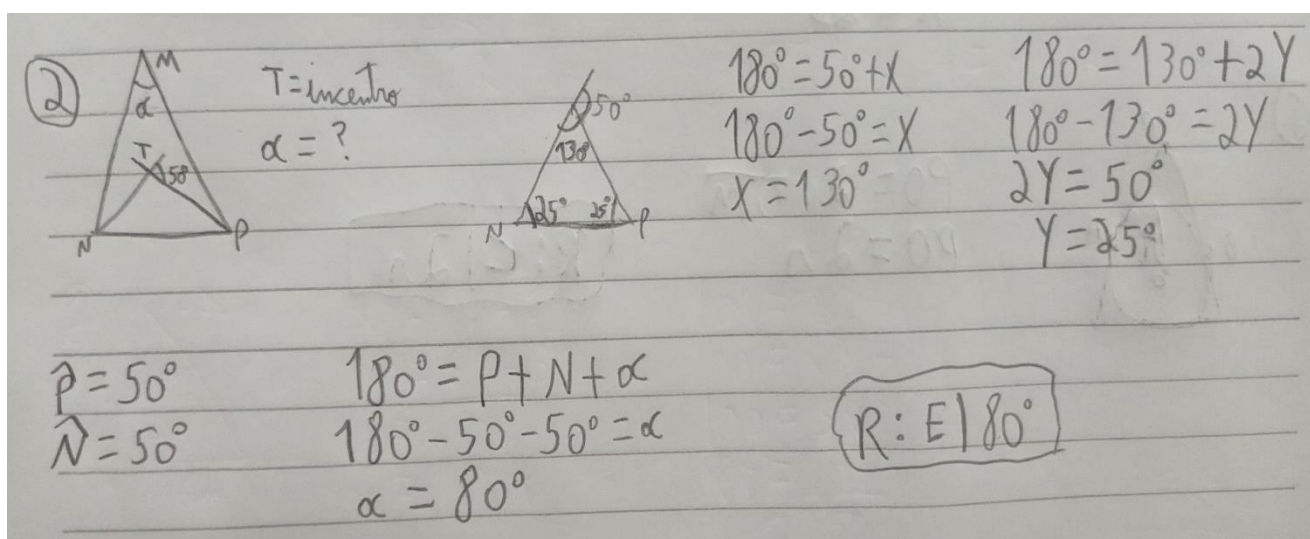 2
M
α
T
50°
N
P
T=incentro
α = ?
50°
130°
25°
25°
N
P
180°=50°+X
180°-50°=X
X=130°
180°=130°+2Y
180°-130°=2Y
2Y=50°
Y=25°
P̂=50°
N̂=50°
180°=P+N+α
180°-50°-50°=α
α=80°
R: E) 80°